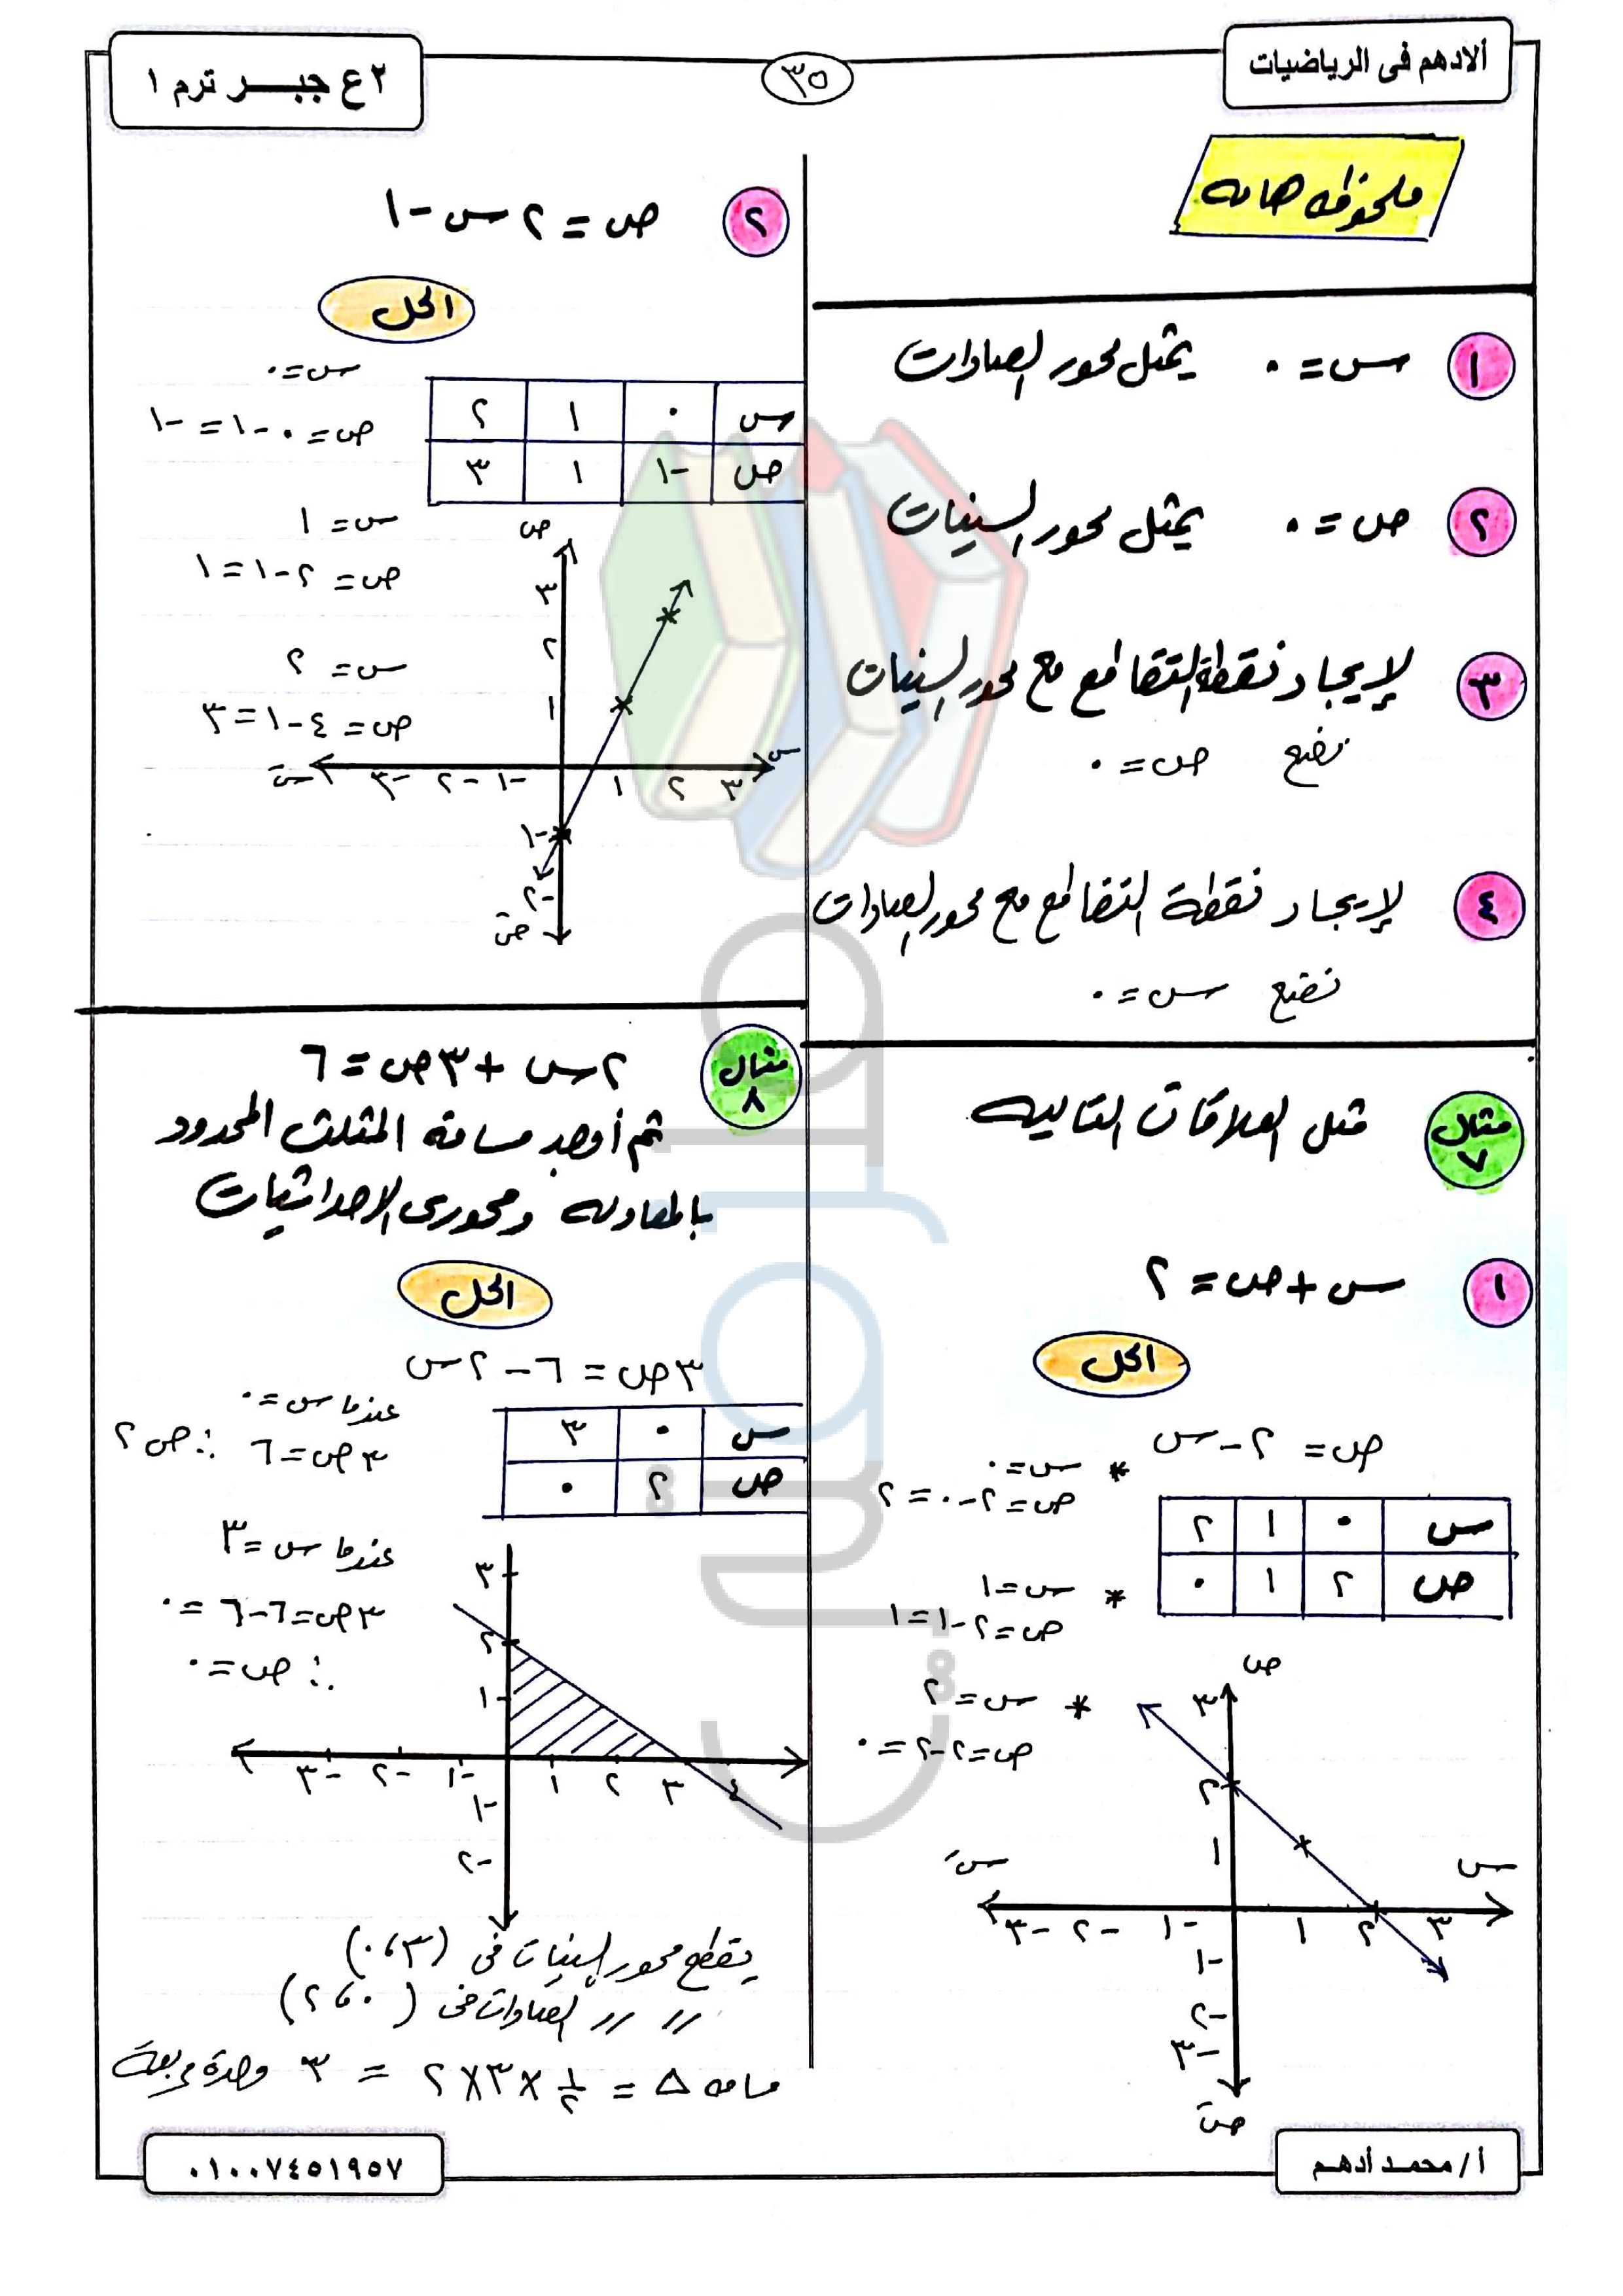 ألادهم فى الرياضيات
٣٥
٢ ع جبـــر ترم ١
ملحوظه هامه
١ س = ٠ يمثل محور الصادات
٢ ص = ٠ يمثل محور السينات
٣ لإيجاد نقطة التقاطع مع محور السينات
نضع ص = ٠
٤ لإيجاد نقطة التقاطع مع محور الصادات
نضع س = ٠
مثال ٧ مثل العلاقات التاليه
١ س + ص = ٢
الحل
ص = ٢ - س
* س = ٠
ص = ٢ - ٠ = ٢
س ٠ ١ ٢
ص ٢ ١ ٠
* س = ١
ص = ٢ - ١ = ١
* س = ٢
ص = ٢ - ٢ = ٠
ص
٣
٢
١
س سَ
٣ ٢ ١ -١ -٢ -٣
-١
-٢
-٣
صَ
٢ ص = ٢ س - ١
الحل
س ٠ ١ ٢
ص -١ ١ ٣
س = ٠
ص = ٠ - ١ = -١
س = ١
ص = ٢ - ١ = ١
س = ٢
ص = ٤ - ١ = ٣
ص
٣
٢
١
س سَ
٣ ٢ ١ -١ -٢ -٣
-١
-٢
صَ
مثال ٨ ٢ س + ٣ ص = ٦
ثم أوجد مساحة المثلث المحدود
بالمعادله ومحورى الإحداثيات
الحل
٣ ص = ٦ - ٢ س
س ٠ ٣
ص ٢ ٠
عندما س = ٠
٣ ص = ٦ ∴ ص ٢
عندما س = ٣
٣ ص = ٦ - ٦ = ٠
∴ ص = ٠
٣
٢
١
٤ ٣ ٢ ١ -١ -٢ -٣
-١
-٢
يقطع محور السينات فى (٣،٠)
// // الصادات فى (٠،٢)
مساحه △ = ½ × ٣ × ٢ = ٣ وحدة مربعة
أ / محمـد أدهـم
٠١٠٠٧٤٥١٩٥٧